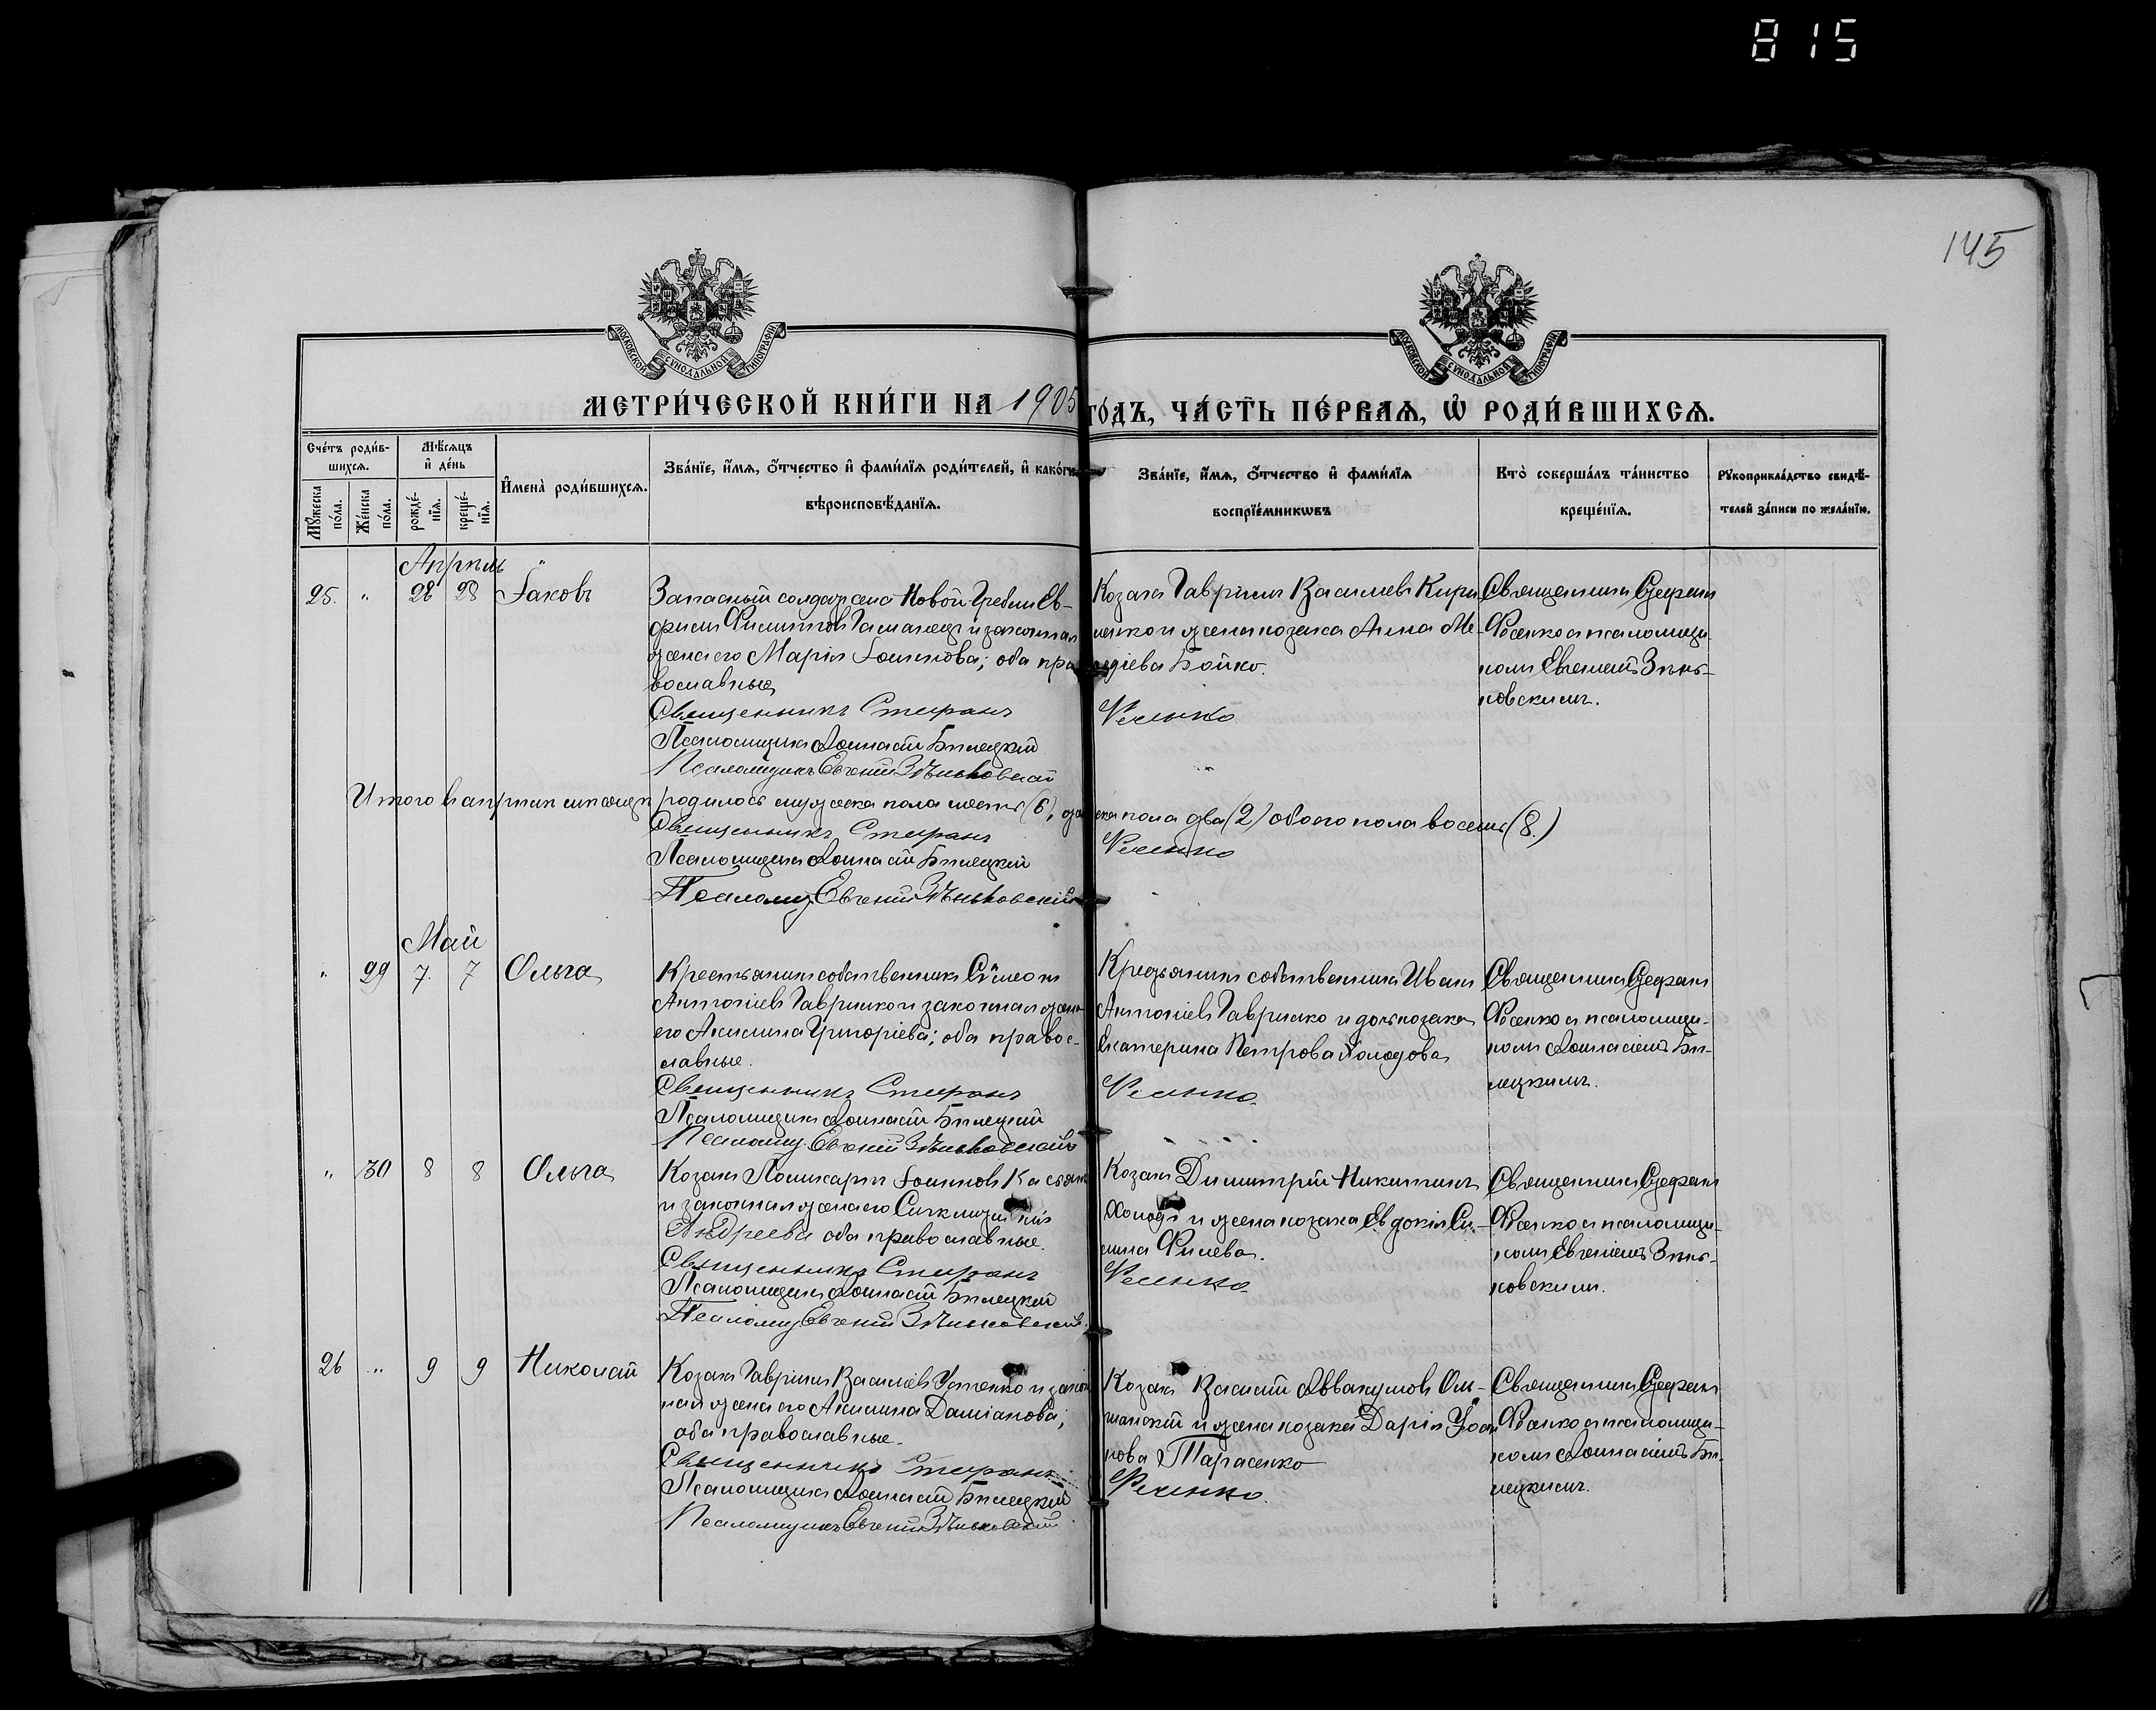 815
145
МОСКОВСКОЙ СѴНОДАЛЬНОЙ ТИПОГРАФІИ
МОСКОВСКОЙ СѴНОДАЛЬНОЙ ТИПОГРАФІИ
МЕТРИ́ЧЕСКОЙ КНИ́ГИ НА 1905 ГО́ДЪ, ЧА́СТЬ ПЕ́РВАЯ, Ѡ҆ РОДИ́ВШИХСЯ.
Сче́тъ роди́в-
шихся.
Мѣ́сяцъ
и҆ де́нь
Мꙋ́жеска по́ла.
Же́нска по́ла.
рожде́-
нїя.
креще́-
нїя.
И҆мена̀ роди́вшихся.
Зва́нїе, и҆́мя, ѻ҆́тчество и҆ фами́лїя роди́телей, и҆ како́гѡ
вѣроисповѣ́данїя.
Зва́нїе, и҆́мя, ѻ҆́тчество и҆ фами́лїя
воспрїе́мникѡвъ
Кто̀ соверша́лъ та́инство
креще́нїя.
Рꙋкоприкла́дство свидѣ́-
телей за́писи по жела́нїю.
Апрѣль
25. " 28 28 Іаковъ
Запасный солдатъ села Новой-Гребли Ев-
и законная
жена его Марія Іоаннова; оба пра-
вославные
Священникъ Стефанъ
Псаломщикъ Аѳанасій Билецкій
Псаломщикъ Евгеній Зѣньковскій
Козакъ Гавріилъ Василіевъ Кири-
ленко и жена козака Анна Ме-
ѳодіева Бойко.
Фесенко
Священникъ Стефанъ
Фесенко съ псаломщи-
комъ Евгеніемъ Зѣнь-
ковскимъ.
Итого въ апрѣлѣ мѣсяцѣ родилось мужеска пола шесть (6), женска пола два (2) обоего пола восемь (8.)
Священникъ Стефанъ Фесенко
Псаломщикъ Аѳанасій Билецкій
Псаломщ. Евгеній Зѣньковскій
Май
" 29 7. 7 Ольга
Крестьянинъ собственникъ Сѵмеонъ
Антоніевъ Гавришко и законная жена
его Акилина Григоріева; оба правос-
лавные.
Священникъ Стефанъ
Псаломщикъ Аѳанасій Билецкій
Псаломщ. Евгеній Зѣньковскій
Крестьянинъ собственникъ Иванъ
Антоніевъ Гавришко и дочь козака
Екатерина Петрова Холодова
Фесенко.
Священникъ Стефанъ
Фесенко съ псаломщи-
комъ Аѳанасіемъ Би-
лецкимъ.
" 30 8 8 Ольга
Козакъ Поликарпъ Іоанновъ
и законная жена его
Андреева оба православные.
Священникъ Стефанъ
Псаломщикъ Аѳанасій Билецкій
Псаломщ. Евгеній Зѣньковскій.
Козакъ Димитрій Никитинъ
Холодъ и жена козака Евдокія
Фесенко.
Священникъ Стефанъ
Фесенко съ псаломщи-
комъ Евгеніемъ Зѣнь-
ковскимъ.
26 " 9 9 Николай
Козакъ Гавріилъ Василіевъ Устенко и закон-
ная жена его Акилина Даміанова;
оба православные.
Священникъ Стефанъ
Псаломщикъ Аѳанасій Билецкій
Псаломщикъ Евгеній Зѣньковскій
Козакъ Василій Аввакумовъ Ол-
шанскій и жена козака Дарія Іоан-
нова Тарасенко
Фесенко.
Священникъ Стефанъ
Фесенко съ псаломщи-
комъ Аѳанасіемъ Би-
лецкимъ.